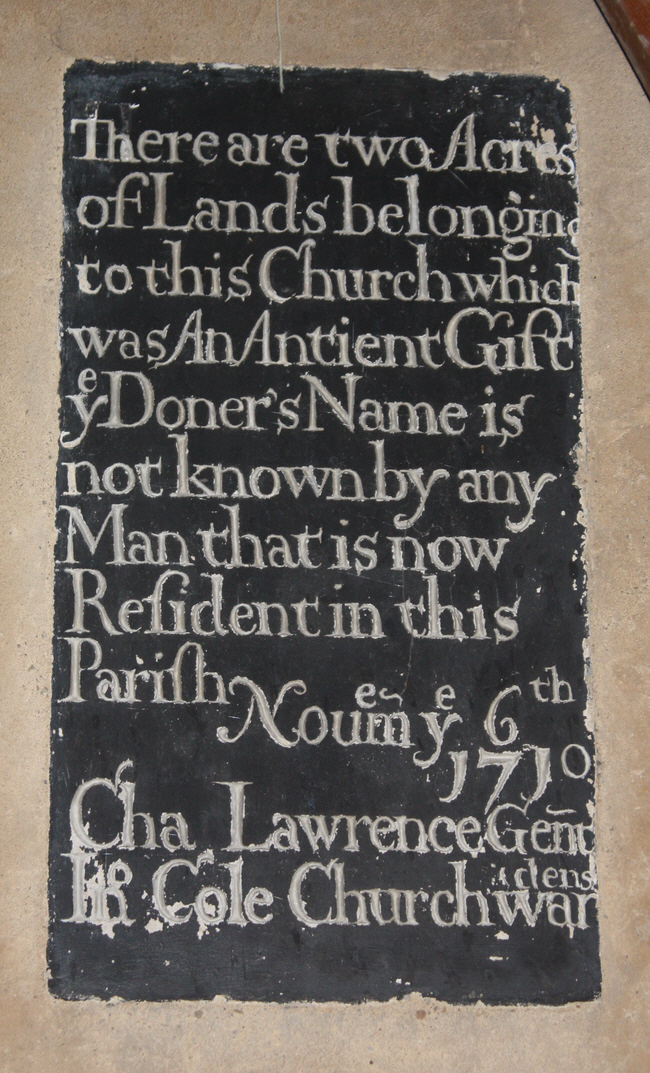 There are two Acres
of Lands belonging
to this Church which
was An Antient Gift
yᵉ Doner's Name is
not known by any
Man that is now
Reſident in this
Pariſh Nouem̄ᵉ yᵉ 6th
1710
Cha Lawrence Gen̄t
Cole Churchwardens